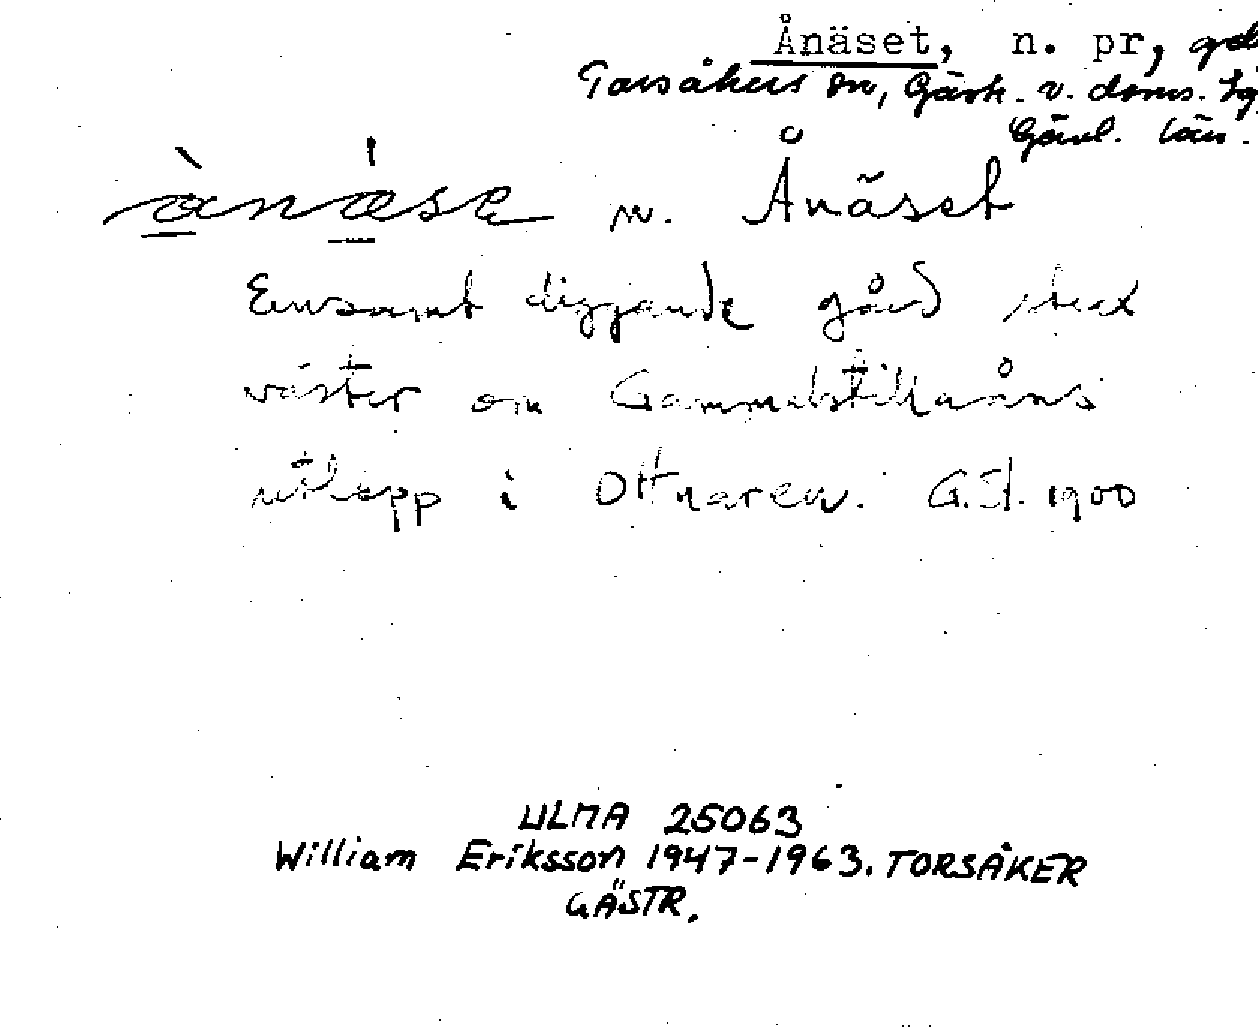 Ånäset, n. pr,
Torsåkers sn, Gästr. v. doms. 
Gävl. län.
ànáse n. Ånäset
Ensamt liggande gård strax
väster om Gammelstillaåns
utlopp i Ottnaren. G.St. 1900
ULMA 25063
William Eriksson 1947-1963. TORSÅKER
GÄSTR.